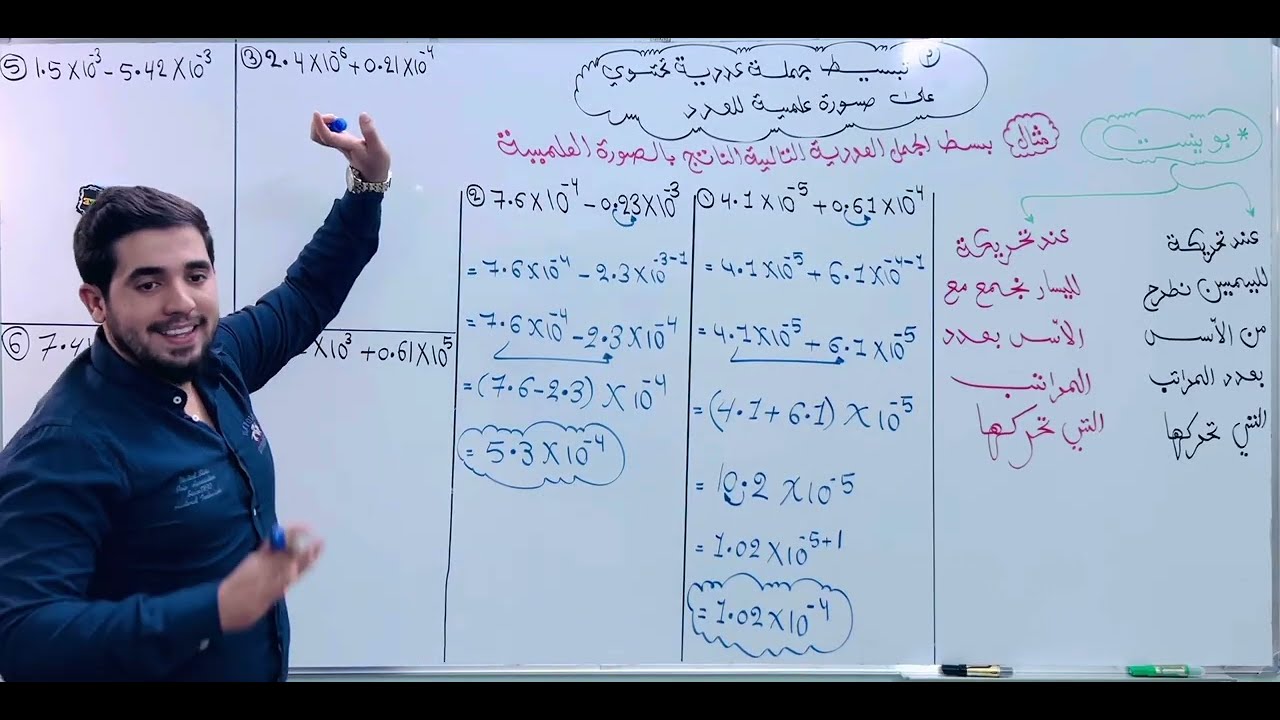 ٣) تبسيط جملة عددية تحتوي
على صورة علمية للعدد
* بوينت
عند تحريكة
لليمين نطرح
من الأسس
بعدد المراتب
التي تحركها
عند تحريكة
لليسار نجمع مع
الأسس بعدد
المراتب
التي تحركها
مثال بسط الجمل العددية التالية الناتج بالصورة العلمية
① 4.1×10⁻⁵ + 0.61×10⁻⁴
= 4.1×10⁻⁵ + 6.1×10⁻⁴⁻¹
= 4.1×10⁻⁵ + 6.1×10⁻⁵
= (4.1 + 6.1) × 10⁻⁵
= 10.2 × 10⁻⁵
= 1.02×10⁻⁵⁺¹
= 1.02×10⁻⁴
② 7.6×10⁻⁴ - 0.23×10⁻³
= 7.6×10⁻⁴ - 2.3×10⁻³⁻¹
= 7.6×10⁻⁴ - 2.3×10⁻⁴
= (7.6 - 2.3) × 10⁻⁴
= 5.3×10⁻⁴
③ 2.4×10⁻⁶ + 0.21×10⁻⁴
×10³ + 0.61×10⁵
⑤ 1.5×10⁻³ - 5.42×10⁻³
⑥ 7.4